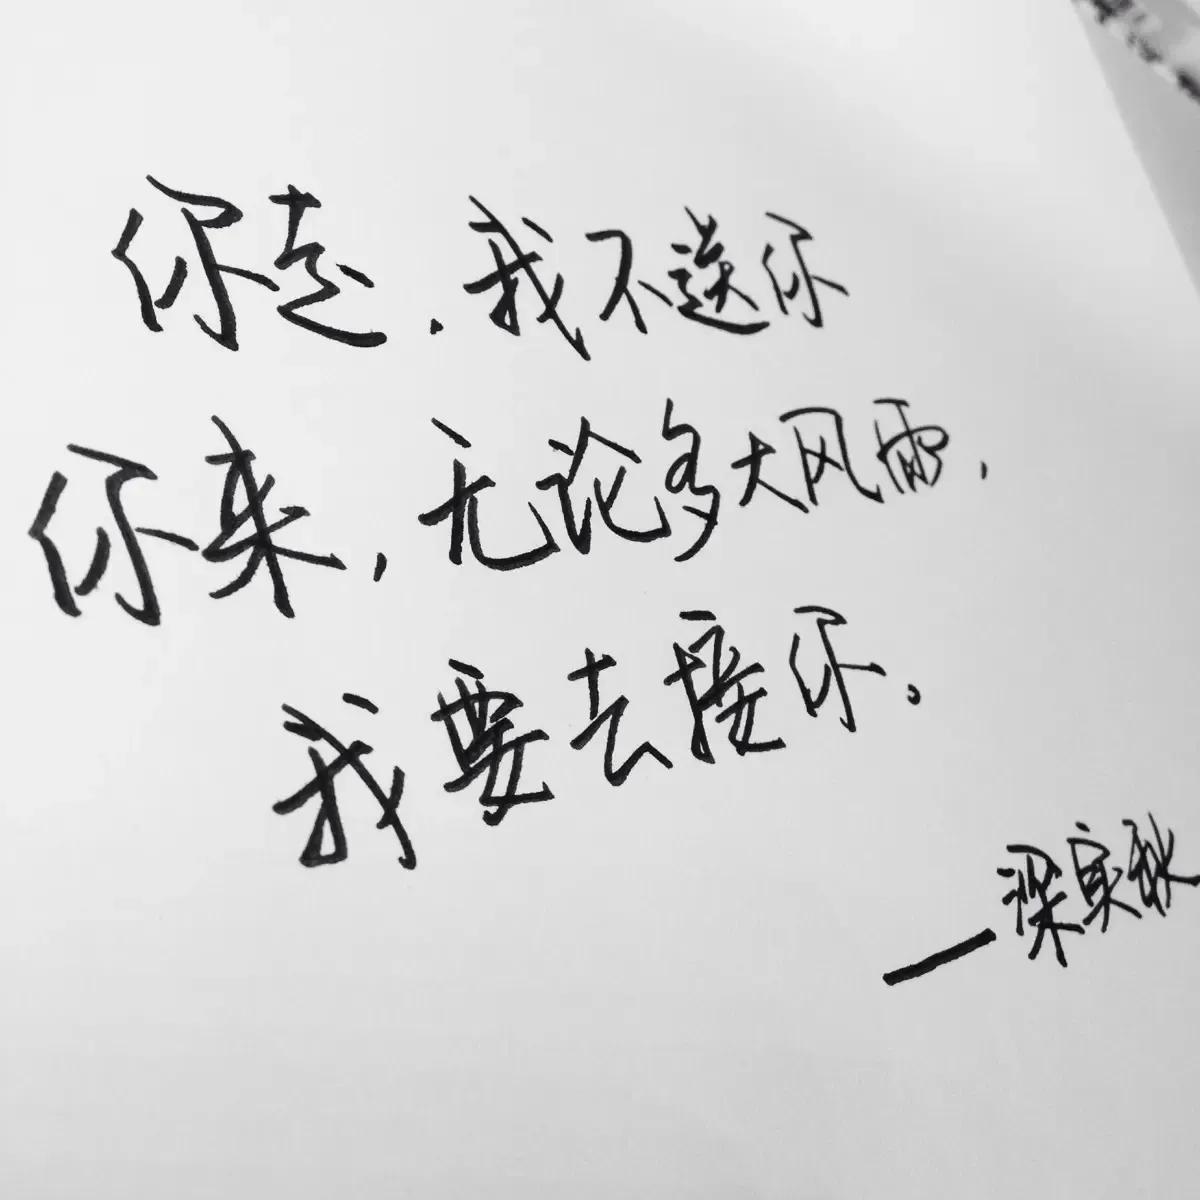 你走,我不送你
你来,无论多大风雨,
我要去接你。
—梁实秋